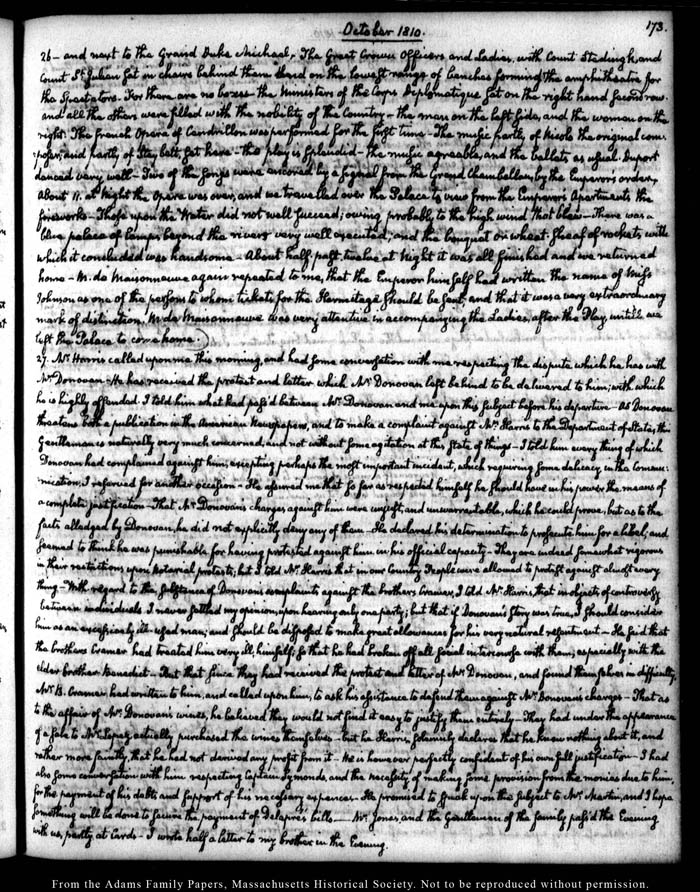 October 1810.
173.
26 - and next to the Grand Duke Michael, The Great Crown Officers and Ladies, with Count Stedingk, and
Count St. Julien sat in chairs behind them and on the lowest range of benches forming the amphitheatre for
the Spectators. For there are no boxes - the Ministers of the Corps Diplomatique sat on the right hand second row.
and all the others were filled with the nobility of the Country - the men on the left side, and the women on the
right. The French Opera of Cendrillon was performed for the first time - The music partly of Nicolo the original com-
poser, and partly of Steybelt, sat here - the play is splendid - the music agreeable, and the ballets as usual. Duport
danced very well - Two of the songs were encored by a signal from the Grand Chamberlain, by the Emperor's order.
About 11. at Night the Opera was over, and we travelled over the Palace to view from the Emperor's Apartments the
fireworks - Those upon the Water did not well succeed; owing probably to the high wind that blew - There was a
blue palace of lamps beyond the river very well executed; and the bouquet or wheat-sheaf of rockets with
which it concluded was handsome - About half-past twelve at Night it was all finished and we returned
home - Mr. de Maisonneuve again repeated to me, that the Emperor himself had written the name of Miss
Johnson as one of the persons to whom tickets for the Hermitage should be sent, and that it was a very extraordinary
mark of distinction. Mr. de Maisonneuve was very attentive in accompanying the Ladies, after the Play, until we
left the Palace to come home.
27. Mr. Harris called upon me this morning, and had some conversation with me respecting the dispute which he has with
Mr. Donovan - He has received the protest and letter which Mr. Donovan left behind to be delivered to him; with which
he is highly offended. I told him what had pass'd between Mr. Donovan and me upon this subject before his departure - As Donovan
threatens both a publication in the American Newspapers, and to make a complaint against Mr. Harris to the Department of State, the
Gentleman is naturally very much concerned, and not without some agitation at this state of things - I told him every thing of which
Donovan had complained against him, excepting perhaps the most important incident, which requiring some delicacy in the commu-
nication, I reserved for another occasion - He assured me that so far as respected himself he should have in his power the means of
a complete justification - That Mr. Donovan's charges against him were unjust, and unwarrantable, which he could prove, but as to the
facts alledged by Donovan, he did not explicitly deny any of them - He declared his determination to prosecute him for a libel, and
seemed to think he was punishable for having protested against him in his official capacity - They are indeed somewhat rigorous
in their restrictions upon Notarial protests; but I told Mr. Harris that in our Country People were allowed to protest against almost every
thing - With regard to the substance of Donovan's complaints against the brothers Cramer, I told Mr. Harris, that in objects of controversy
between individuals I never settled my opinion, upon hearing only one party; but that if Donovan's story was true, I should consider
him as an excessively ill-used man; and should be disposed to make great allowances for his very natural resentment - He said that
the brothers Cramer had treated him very ill, himself; so that he had broken off all social intercourse with them, especially with the
elder brother Benedict - But that since they had received the protest and letter of Mr. Donovan, and found themselves in difficulty,
Mr. B. Cramer had written to him, and called upon him, to ask his assistance to defend them against Mr. Donovan's charges - That as
to the affair of Mr. Donovan's wines, he believed they would not find it easy to justify them entirely - They had under the appearance
of a sale to Mr. Lopez, actually purchased the wines themselves - but he Harris, solemnly declares that he knew nothing about it, and
rather more faintly, that he had not derived any profit from it - He is however perfectly confident of his own full justification - I had
also some conversation with him respecting Captain Symonds, and the necessity of making some provision from the monies due to him,
for the payment of his debts and support of his necessary expences - He promised to speak upon the subject to Mr. Martin, and I hope
something will be done to secure the payment of Delapre's bills - Mr. Jones, and the Gentlemen of the family pass'd the Evening
with us, partly at Cards - I wrote half a letter to my brother in the Evening.
From the Adams Family Papers, Massachusetts Historical Society. Not to be reproduced without permission.